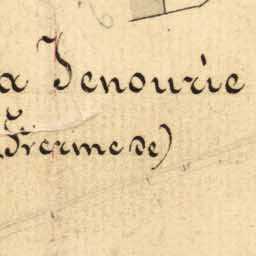 a Jenourie
Ferme de)